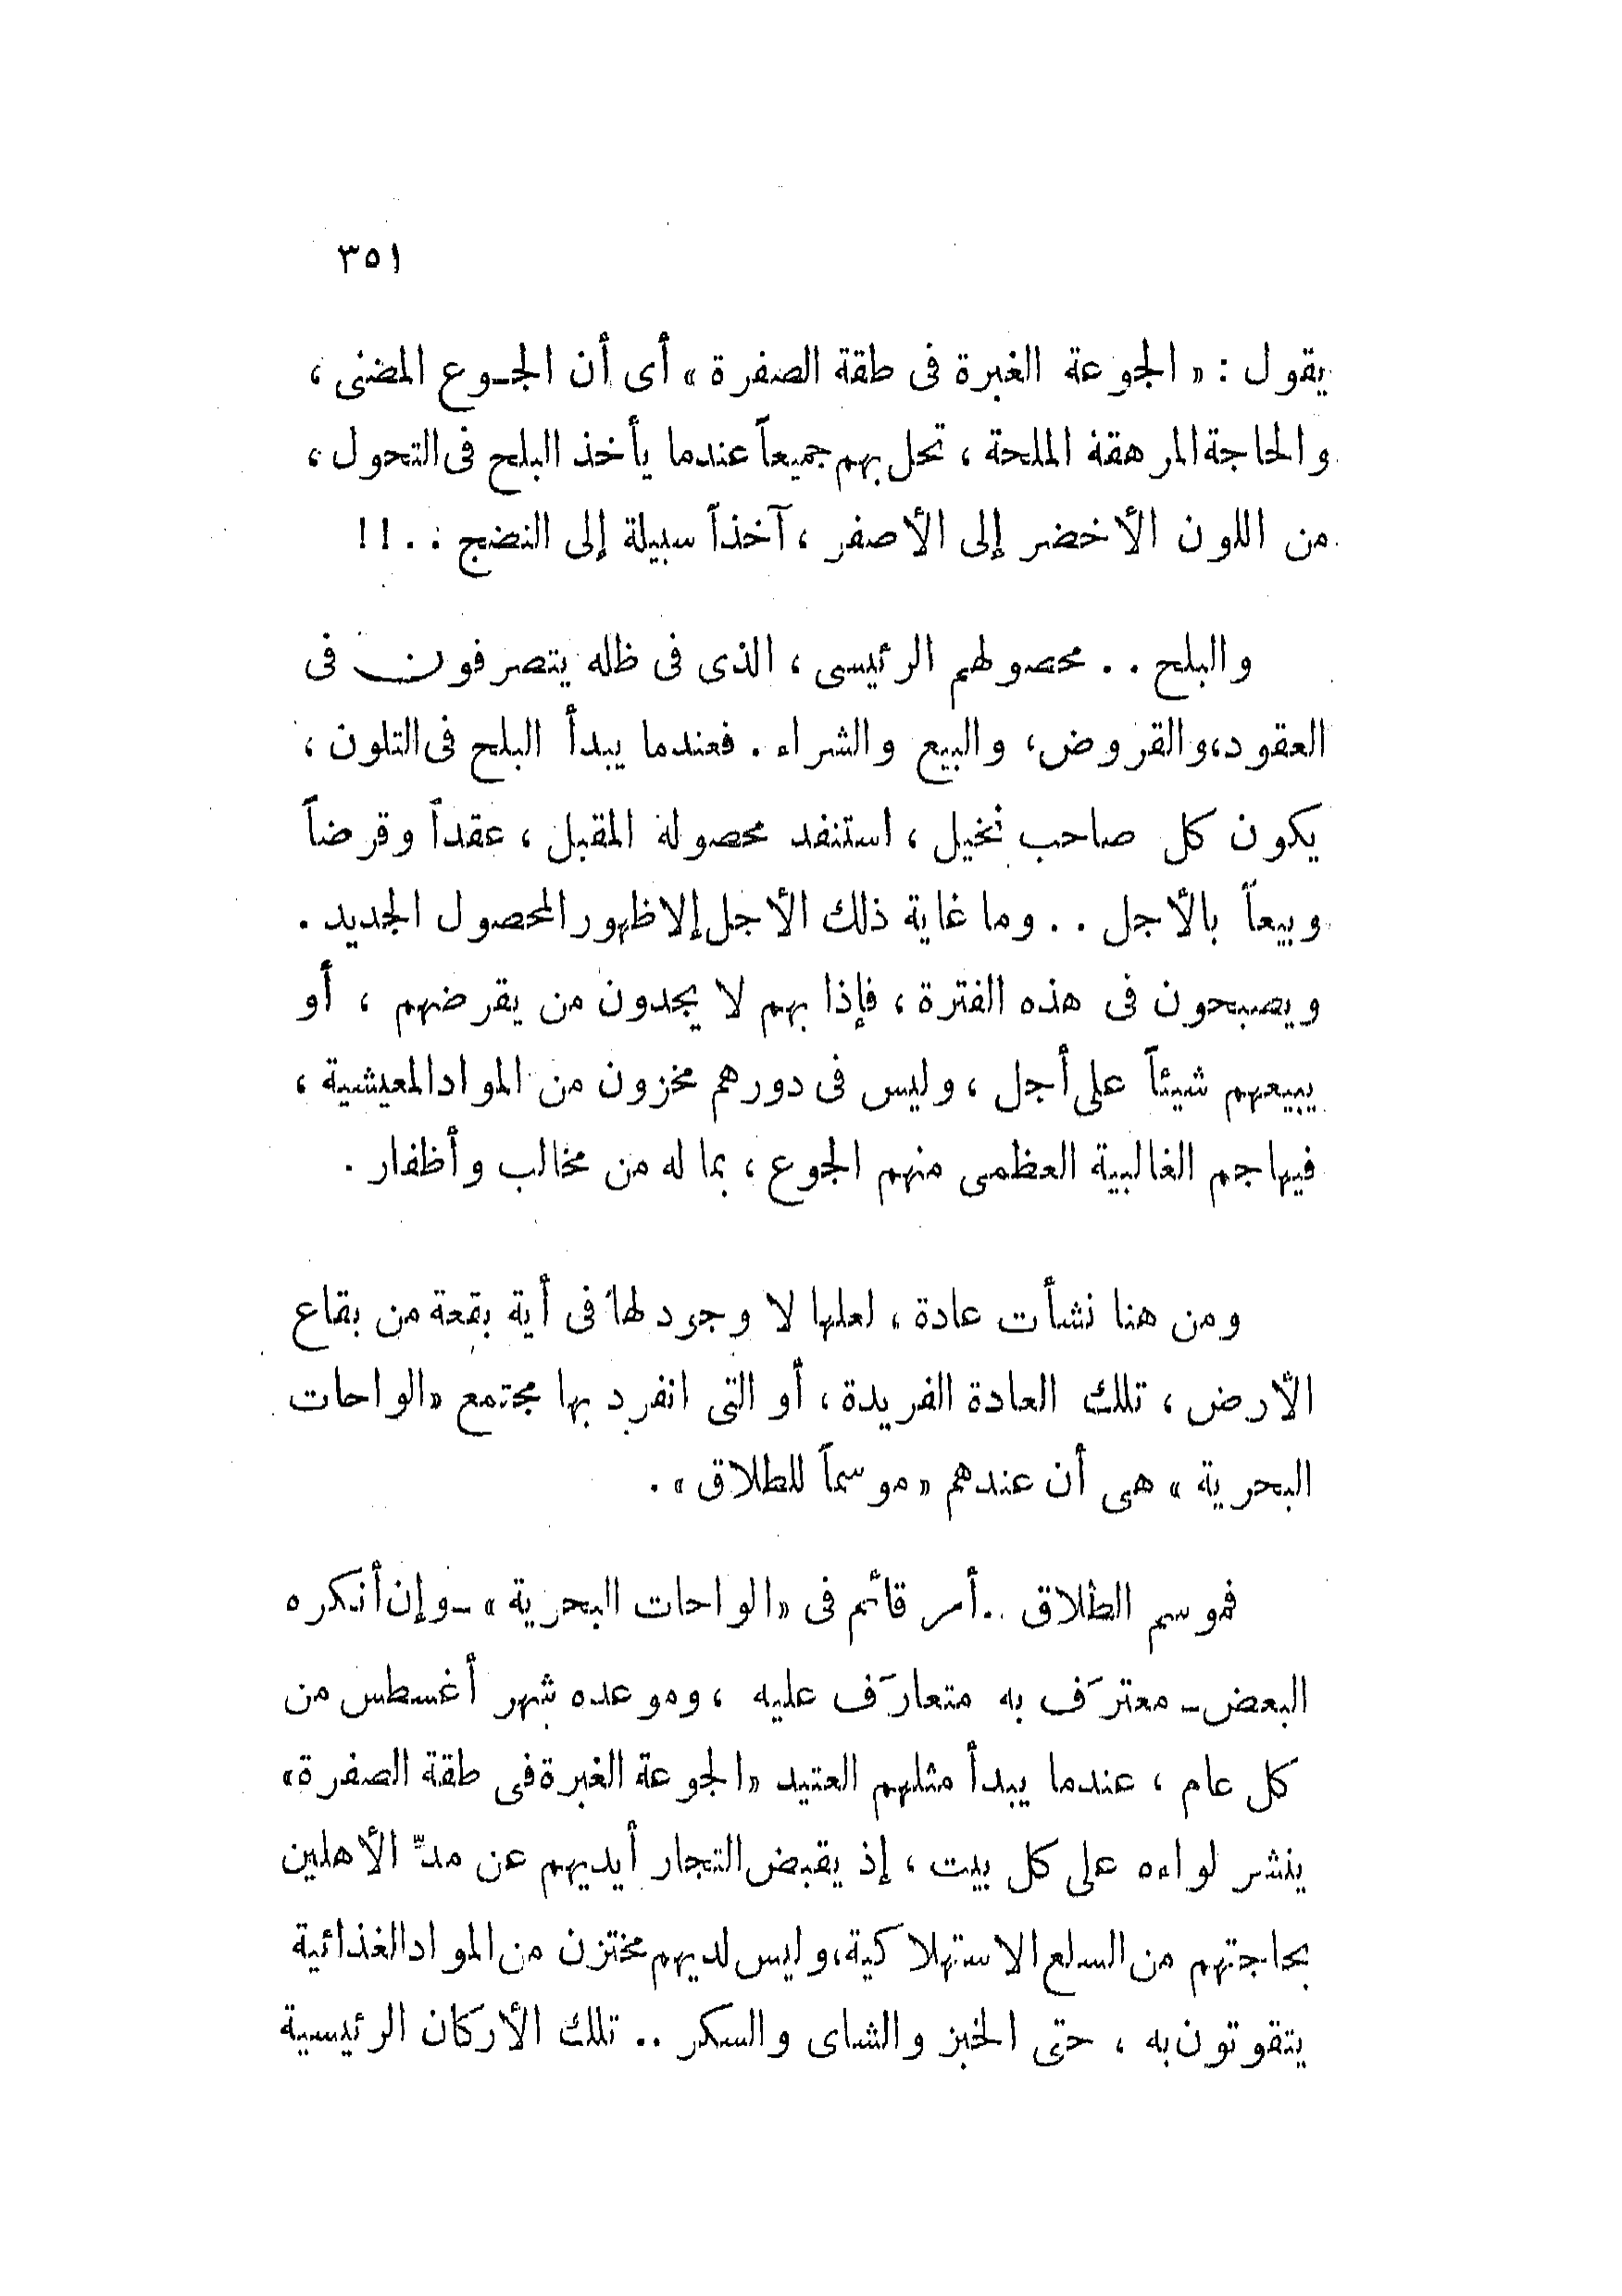 ٣٥١
يقول : « الجوعة الغبرة فى طقة الصفرة » أى أن الجـوع المضنى ،
والحاجة المرهقة الملحة ، تحل بهم جميعاً عندما يأخذ البلح فى التحول ،
من اللون الأخضر إلى الأصفر ، آخذاً سبيلة إلى النضج : . . !!
والبلح . . محصولهم الرئيسى ، الذى فى ظله يتصرفون فى
العقود، والقروض، والبيع والشراء . فعندما يبدأ البلح فى التلون ،
يكون كل صاحب نخيل ، استنفد محصوله المقبل ، عقداً وقرضاً
وبيعاً بالأجل . . وما غاية ذلك الأجل إلا ظهور المحصول الجديد .
ويصبحون فى هذه الفترة ، فإذا بهم لا يجدون من يقرضهم ، أو
يبيعهم شيئاً على أجل ، وليس فى دورهم مخزون من المواد المعيشية ،
فيهاجم الغالبية العظمى منهم الجوع ، بما له من مخالب وأظفار .
ومن هنا نشأت عادة ، لعلها لا وجود لها فى أية بقعة من بقاع
الأرض ، تلك العادة الفريدة ، أو التى انفرد بها مجتمع « الواحات
البحرية » هى أن عندهم « موسماً للطلاق » .
فموسم الطلاق .. أمر قائم فى « الواحات البحرية » ــ وإن أنكره
البعض ــ معترَف به متعارَف عليه ، وموعده شهر أغسطس من
كل عام ، عندما يبدأ مثلهم العتيد « الجوعة الغبرة فى طقة الصفرة »
ينشر لواءه على كل بيت ، إذ يقبض التجار أيديهم عن مدّ الأهلين
بحاجتهم من السلع الاستهلاكية، وليس لديهم مختزن من المواد الغذائية
يتقوتون به ، حتى الخبز والشاى والسكر .. تلك الأركان الرئيسية